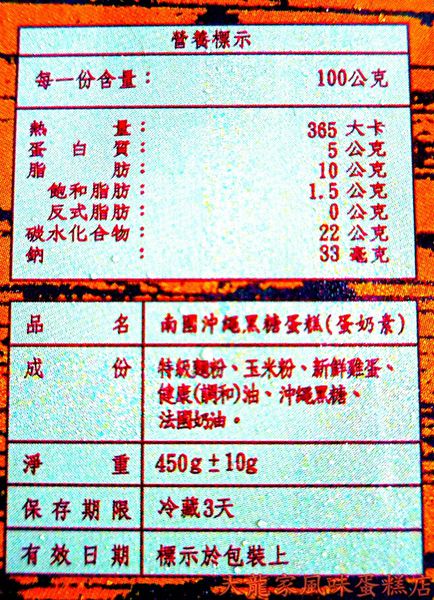 營養標示
每一份含量： 100公克
熱量： 365 大卡
蛋白質： 5 公克
脂肪： 10 公克
飽和脂肪： 1.5 公克
反式脂肪： 0 公克
碳水化合物： 22 公克
鈉： 33 毫克
品名 南國沖繩黑糖蛋糕(蛋奶素)
成份 特級麵粉、玉米粉、新鮮雞蛋、
健康(調和)油、沖繩黑糖、
法國奶油。
淨重 450g±10g
保存期限 冷藏3天
有效日期 標示於包裝上
大龍家風味蛋糕店